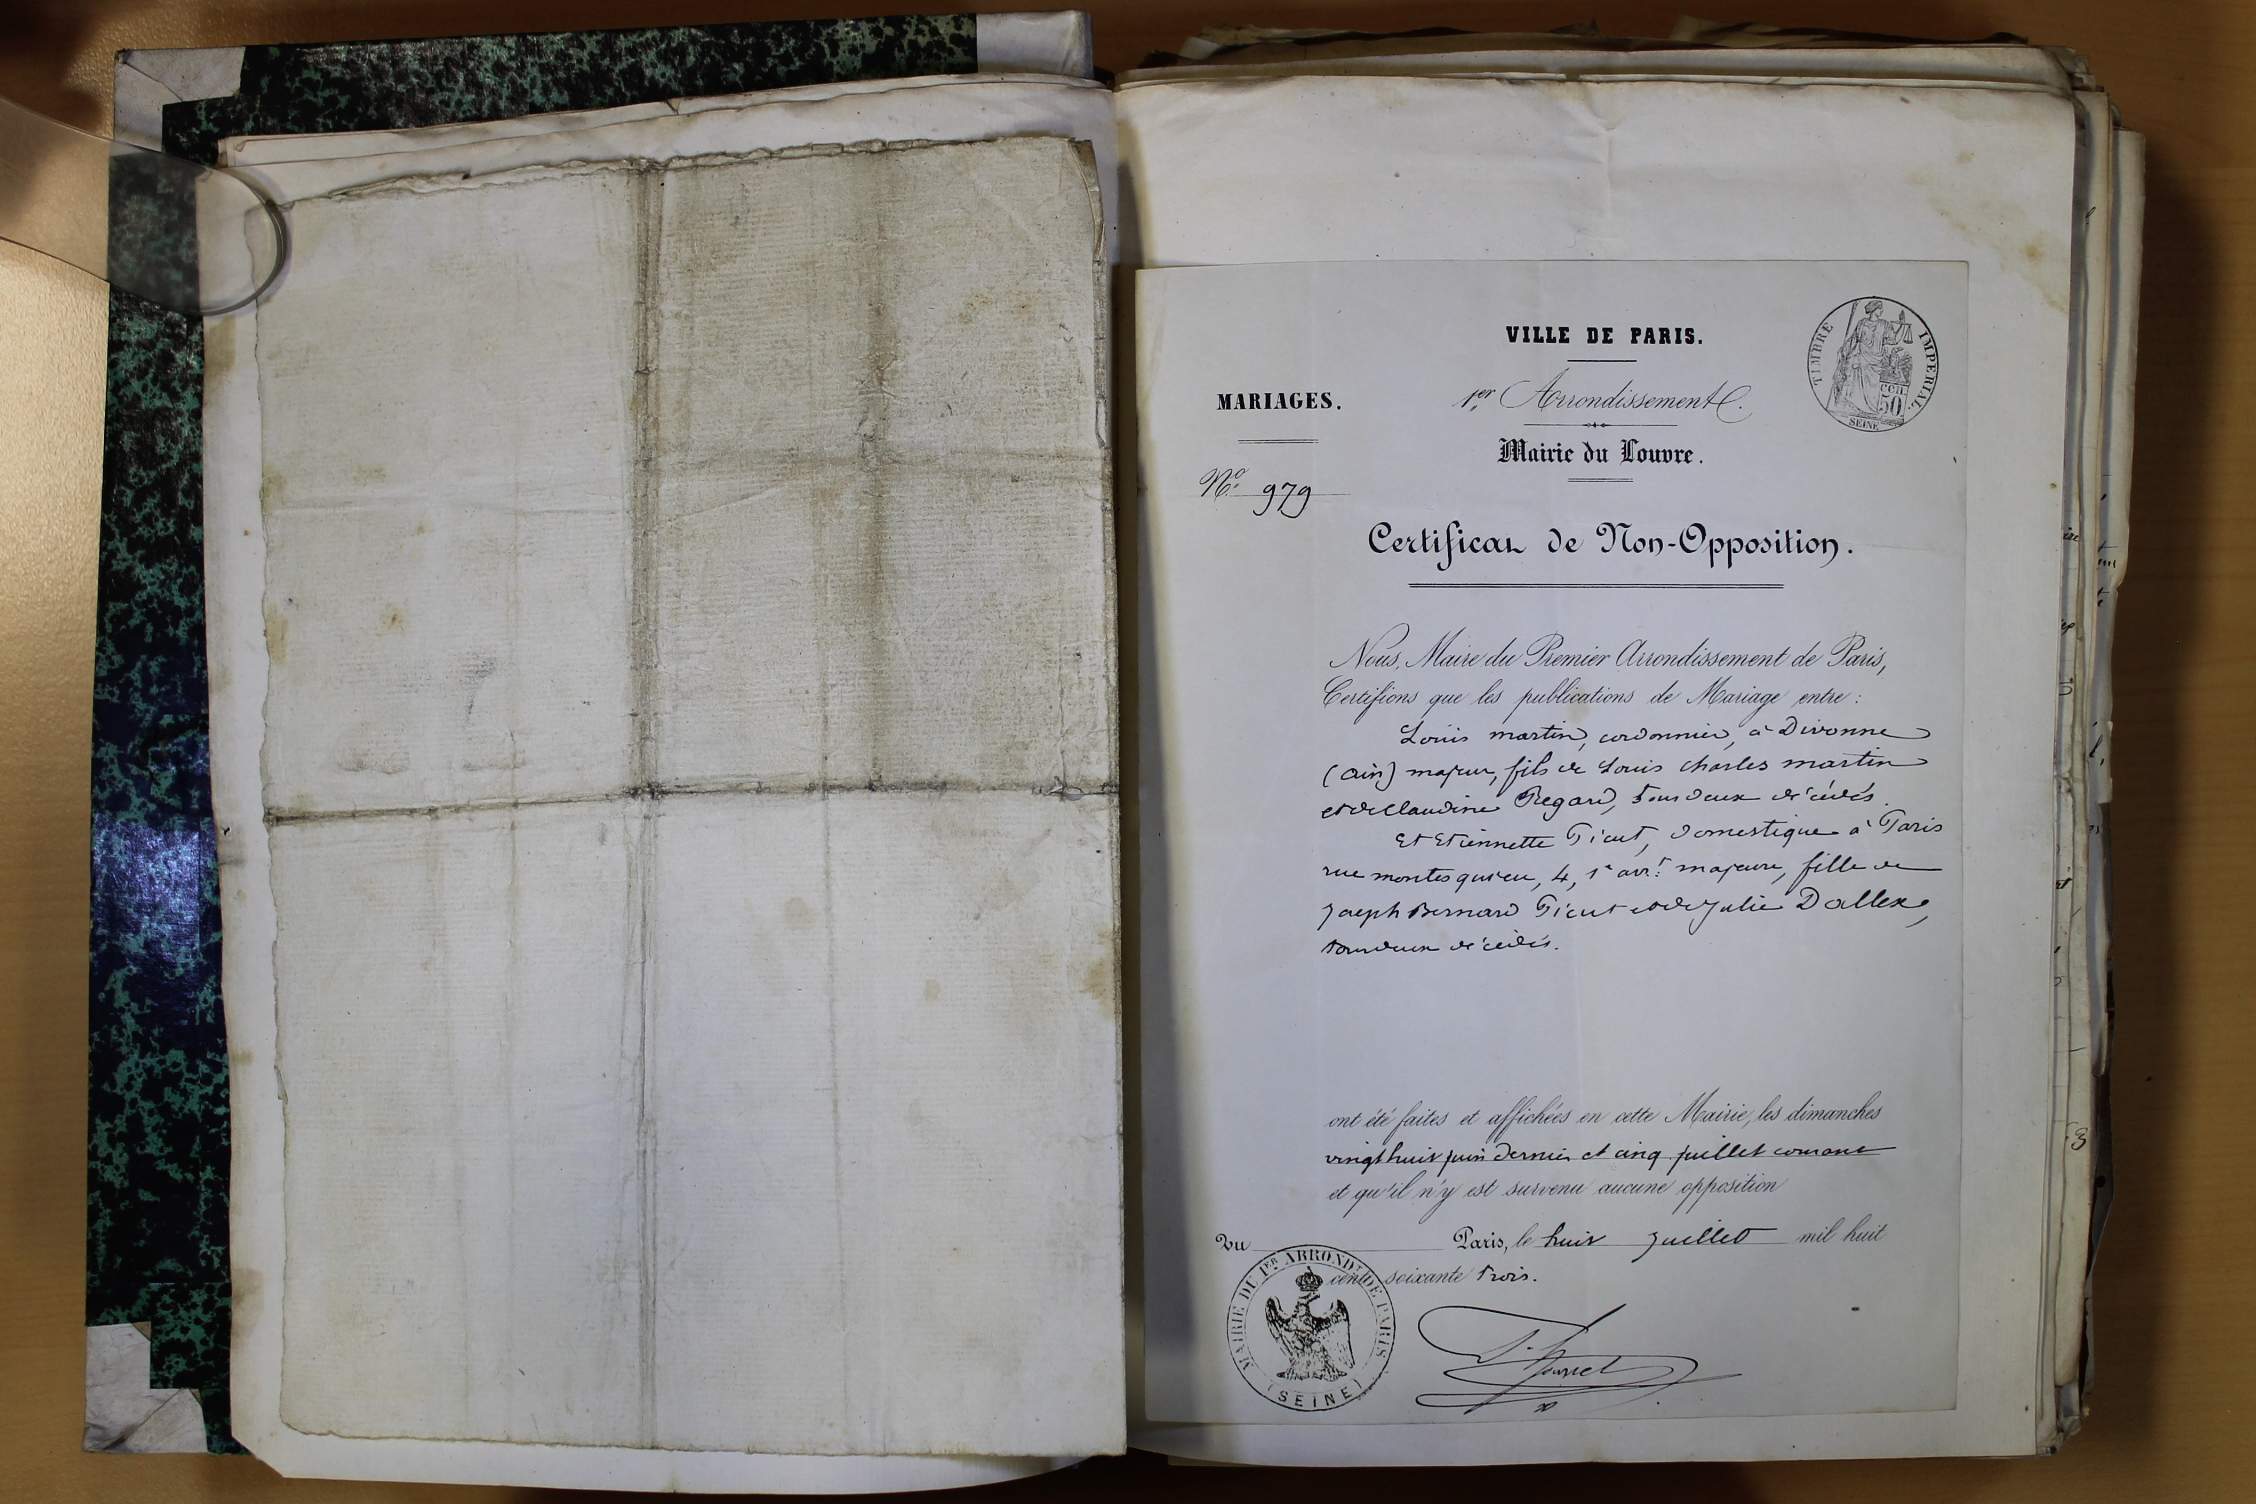 VILLE DE PARIS.
TIMBRE IMPERIAL.
50 cen
SEINE
1er Arrondissement.
MARIAGES.
Mairie du Louvre.
No. 979
Certificat de Non-Opposition.
Nous, Maire du Premier Arrondissement de Paris,
Certifions que les publications de Mariage entre :
Louis martin, cordonnier, à Divonne
(ain) majeur, fils de Louis charles martin
et de Claudine Regard, tous deux décédés.
Et Etiennette Picut, domestique à Paris
rue montesquieu, 4, 1r arrt. majeure, fille de
Joseph Bernard Picut et de Julie Dallex,
tous deux décédés.
ont été faites et affichées en cette Mairie, les dimanches
vingt huit juin dernier et cinq juillet courant
et qu'il n'y est survenu aucune opposition
Vu Paris, le huit Juillet mil huit
cent soixante trois.
MAIRIE DU 1ER ARRONDT DE PARIS
(SEINE)